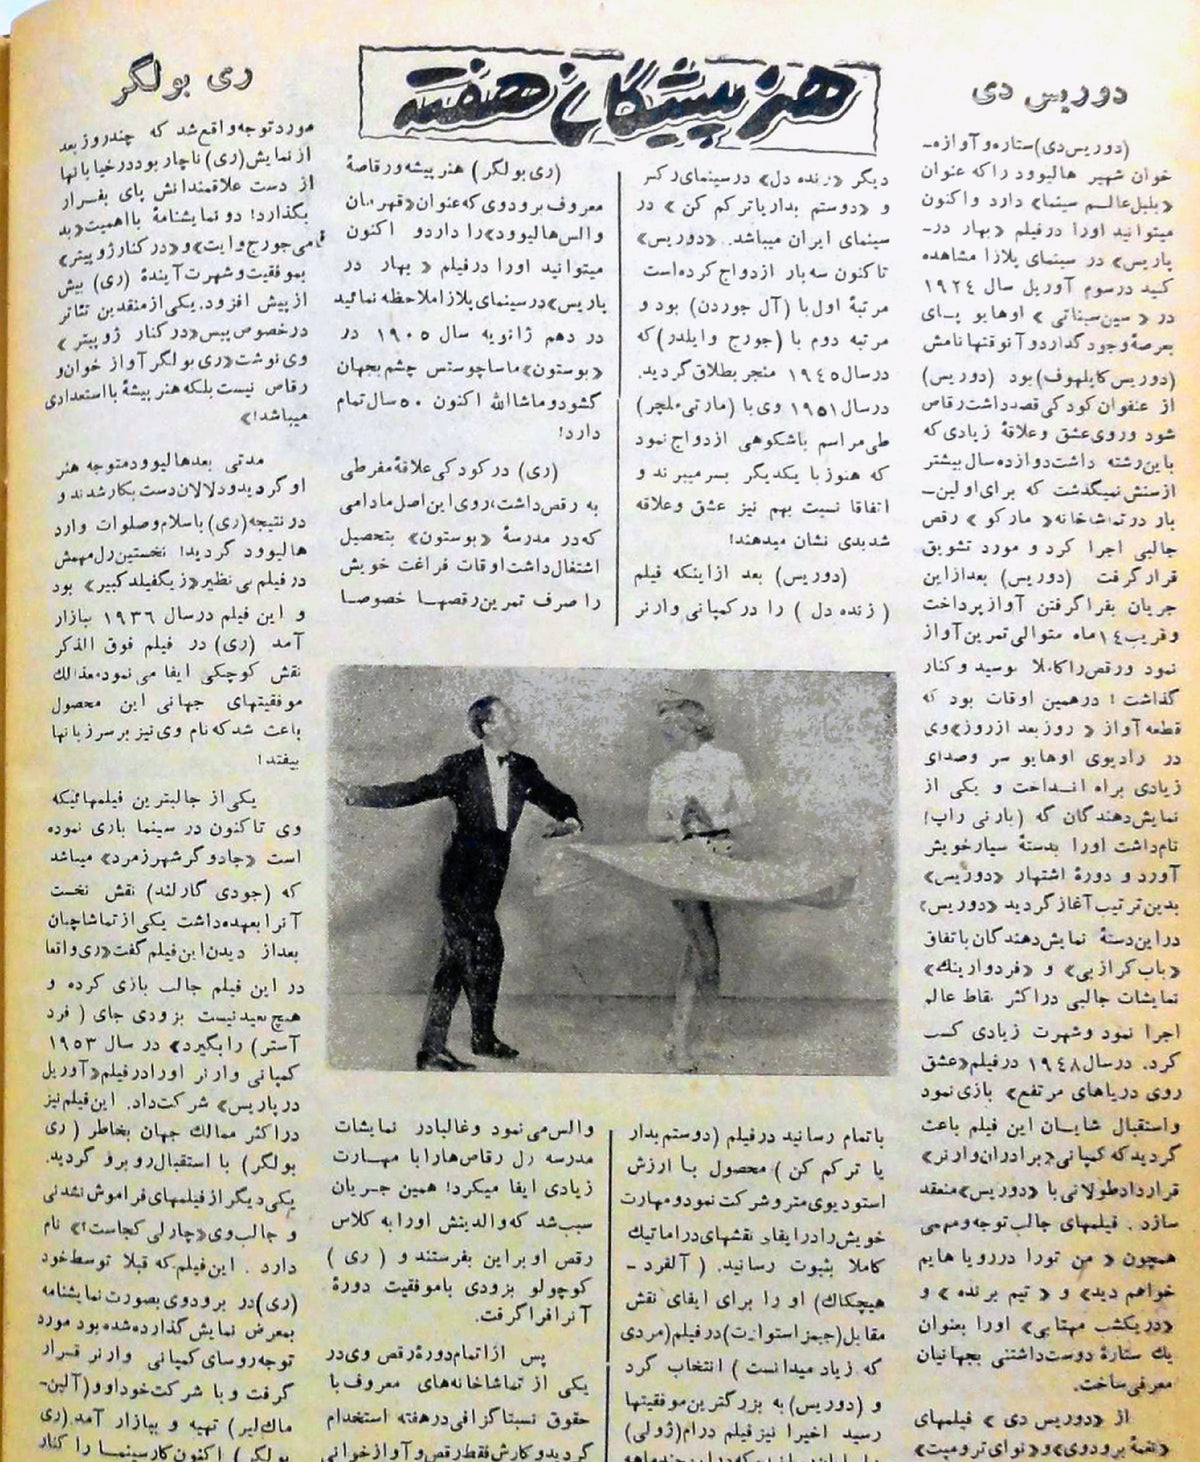 هنرپیشگان هفته
دوریس دی
(دوریس دی) ستاره و آوازه‌ـ
خوان شهیر هالیوود را که عنوان
«بلبل عالم سینما» دارد واکنون
میتوانید اورا درفیلم «بهار درـ
پاریس» در سینمای پلازا مشاهده
کنید درسوم آوریل سال ۱۹۲٤
در «سین‌سیناتی» اوهایو پای
بعرصهٔ وجود گذارد و آنوقتها نامش
(دوریس کاپلهوف) بود (دوریس)
از عنفوان کودکی قصد داشت رقاص
شود وروی عشق وعلاقهٔ زیادی که
باین رشته داشت دوازده سال بیشتر
از سنش نمیگذشت که برای اولین‌ـ
بار در تماشاخانه «مارکو» رقص
جالبی اجرا کرد و مورد تشویق
قرار گرفت (دوریس) بعد از این
جریان بفرا گرفتن آواز پرداخت
و قریب ۱٤ ماه متوالی تمرین آواز
نمود و رقص را کاملا بوسید و کنار
گذاشت! در همین اوقات بود که
قطعه آواز «روز بعد از روز» وی
در رادیوی اوهایو سر وصدای
زیادی براه انداخت و یکی از
نمایش‌دهندگان که (بارنی راپ)
نام داشت اورا بدستهٔ سیار خویش
آورد و دورهٔ اشتهار «دوریس»
بدین ترتیب آغاز گردید «دوریس»
در این دستهٔ نمایش‌دهندگان باتفاق
«باب کرازبی» و «فرد وارینك»
نمایشات جالبی در اکثر نقاط عالم
اجرا نمود وشهرت زیادی کسب
کرد. درسال ۱۹٤۸ درفیلم «عشق
روی دریاهای مرتفع» بازی نمود
واستقبال شایان این فیلم باعث
گردید که کمپانی «برادران وارنر»
قرار داد طولانی با «دوریس» منعقد
سازد. فیلمهای جالب توجه و مهمی
همچون «من تورا در رویاهایم
خواهم دید» و «تیم برنده» و
«در یکشب مهتابی» اورا بعنوان
یك ستارهٔ دوست داشتنی بجهانیان
معرفی ساخت.
از «دوریس دی» فیلمهای
«نغمهٔ برودوی» و «نوای ترومپت»
دیگر «زنده دل» در سینمای رکس
و «دوستم بدار یا ترکم کن» در
سینمای ایران میباشد. «دوریس»
تاکنون سه بار ازدواج کرده است
مرتبهٔ اول با (آل جوردن) بود و
مرتبه دوم با (جورج وایلدر) که
در سال ۱۹٤٥ منجر بطلاق گردید.
در سال ۱۹٥۱ وی با (مارتی ملچر)
طی مراسم باشکوهی ازدواج نمود
که هنوز با یکدیگر بسر میبرند و
اتفاقا نسبت بهم نیز عشق وعلاقه
شدیدی نشان میدهند!
(دوریس) بعد از اینکه فیلم
(زنده دل) را در کمپانی وارنر
باتمام رسانید درفیلم (دوستم بدار
یا ترکم کن) محصول با ارزش
استودیوی مترو شرکت نمود و مهارت
خویش را در ایفاء نقشهای دراماتیك
کاملا بثبوت رسانید. (آلفردـ
هیچکاك) او را برای ایفای نقش
مقابل (جیمز استوارت) در فیلم (مردی
که زیاد میدانست) انتخاب کرد
و (دوریس) به بزرگترین موفقیتها
رسید اخیرا نیز فیلم درام (ژولی)
ری بولگر
(ری بولگر) هنرپیشه و رقاصهٔ
معروف برودوی که عنوان «قهرمان
والس هالیوود» را دارد و اکنون
میتوانید اورا درفیلم «بهار در
پاریس» در سینمای پلازا ملاحظه نمائید
در دهم ژانویه سال ۱۹۰٥ در
«بوستون» ماساچوستس چشم بجهان
گشود و ماشاالله اکنون ٥۰ سال تمام
دارد!
(ری) در کودکی علاقهٔ مفرطی
به رقص داشت، روی این اصل مادامی
که در مدرسهٔ «بوستون» بتحصیل
اشتغال داشت اوقات فراغت خویش
را صرف تمرین رقصها خصوصا
والس می‌نمود وغالبا در نمایشات
مدرسه رل رقاص‌ها را با مهارت
زیادی ایفا میکرد! همین جریان
سبب شد که والدینش اورا به کلاس
رقص اوبراین بفرستند و (ری)
کوچولو بزودی باموفقیت دورهٔ
آنرا فرا گرفت.
پس از اتمام دورهٔ رقص وی در
یکی از تماشاخانه‌های معروف با
حقوق نسبتا گزافی در هفته استخدام
گردید و کارش فقط رقص و آواز خوانی
مورد توجه واقع شد که چند روز بعد
از نمایش (ری) ناچار بود در خیابانها
از دست علاقمندانش پای بفرار
بگذارد! دو نمایشنامهٔ بااهمیت «بد
نامی جورج وایت» و «در کنار ژوپیتر»
بموفقیت و شهرت آیندهٔ (ری) بیش
از پیش افزود. یکی از منقدین تئاتر
درخصوص پیس «در کنار ژوپیتر»
وی نوشت «ری بولگر آواز خوان و
رقاص نیست بلکه هنرپیشهٔ بااستعدادی
میباشد!»
مدتی بعد هالیوود متوجه هنر
او گردید و دلالان دست بکار شدند و
در نتیجه (ری) باسلام و صلوات وارد
هالیوود گردید! نخستین رل مهمش
در فیلم بی نظیر «زیگفیلد کبیر» بود
و این فیلم در سال ۱۹۳٦ ببازار
آمد (ری) در فیلم فوق الذکر
نقش کوچکی ایفا می نمود معذالك
موفقیتهای جهانی این محصول
باعث شد که نام وی نیز بر سر زبانها
بیفتد!
یکی از جالبترین فیلمهائیکه
وی تاکنون در سینما بازی نموده
است «جادوگر شهر زمرد» میباشد
که (جودی گارلند) نقش نخست
آنرا بعهده داشت یکی از تماشاچیان
بعد از دیدن این فیلم گفت «ری واقعا
در این فیلم جالب بازی کرده و
هیچ بعید نیست بزودی جای (فرد
آستر) را بگیرد» در سال ۱۹٥۳
کمپانی وارنر اورا در فیلم «آوریل
در پاریس» شرکت داد. این فیلم نیز
در اکثر ممالك جهان بخاطر (ری
بولگر) با استقبال روبرو گردید.
یکی دیگر از فیلمهای فراموش نشدنی
و جالب وی «چارلی کجاست؟» نام
دارد. این فیلم که قبلا توسط خود
(ری) در برودوی بصورت نمایشنامه
بمعرض نمایش گذارده شده بود مورد
توجه روسای کمپانی وارنر قرار
گرفت و با شرکت خود او و (آلین‌ـ
ماك‌لیر) تهیه و ببازار آمد (ری
بولگر) اکنون کار سینما را کنار